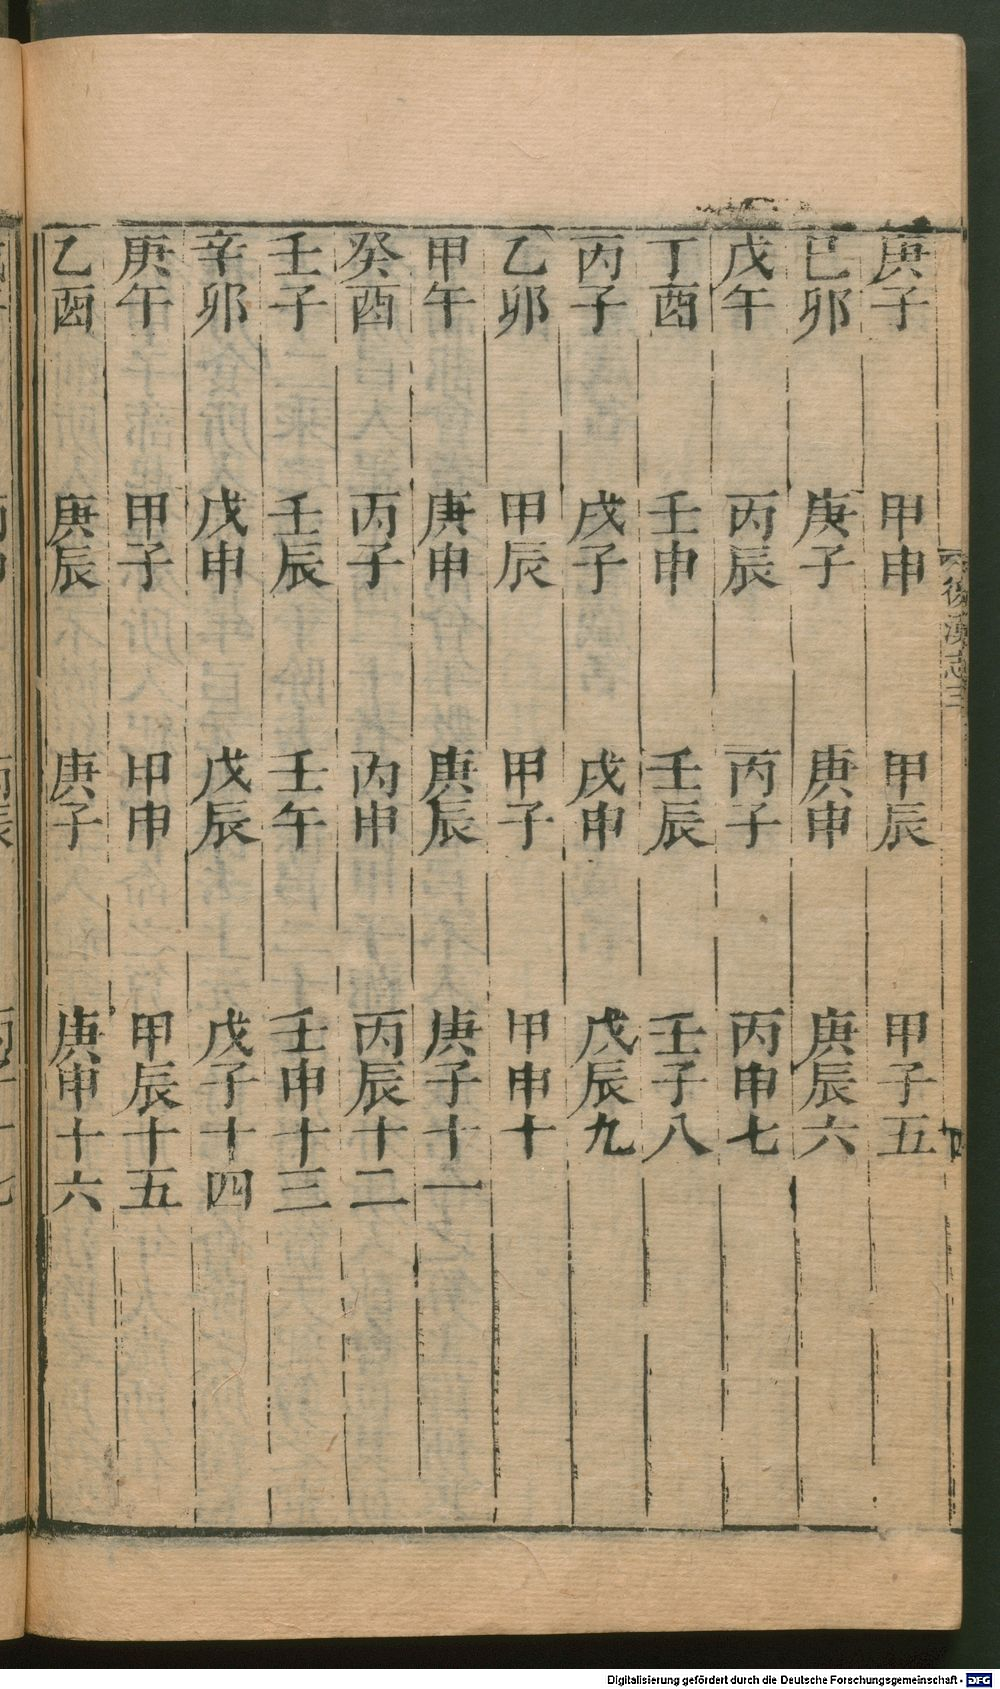 庚子 甲申 甲辰 甲子五
己卯 庚子 庚申 庚辰六
戊午 丙辰 丙子 丙申七
丁酉 壬申 壬辰 壬子八
丙子 戊子 戊申 戊辰九
乙卯 甲辰 甲子 甲申十
甲午 庚申 庚辰 庚子十一
癸酉 丙子 丙申 丙辰十二
壬子 壬辰 壬午 壬申十三
辛卯 戊申 戊辰 戊子十四
庚午 甲子 甲申 甲辰十五
乙酉 庚辰 庚子 庚申十六
後漢志三
Digitalisierung gefördert durch die Deutsche Forschungsgemeinschaft - DFG